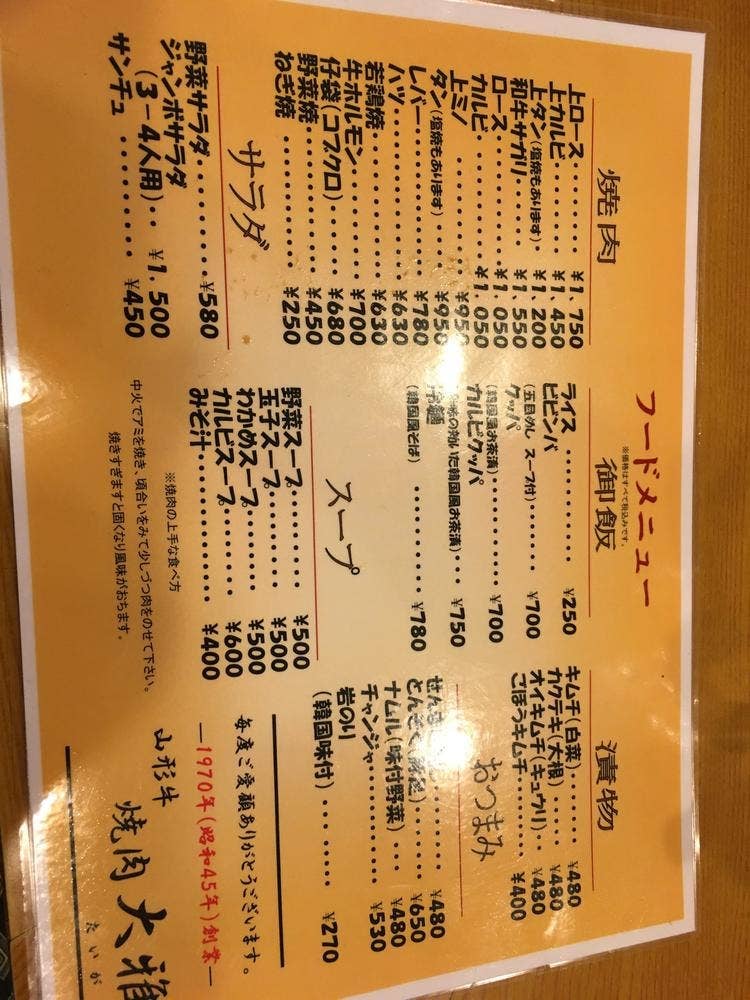 フードメニュー
※価格はすべて税込みです。
焼肉
上ロース・・・・・・・¥1,750
上カルビ・・・・・・・¥1,450
上タン(塩焼もあります)・¥1,200
和牛サガリ・・・・・・¥1,550
ロース・・・・・・・・¥1,050
カルビ・・・・・・・・¥1,050
上ミノ・・・・・・・・¥950
タン(塩焼もあります)・・¥950
レバー・・・・・・・・¥780
ハツ・・・・・・・・・¥630
若鶏焼・・・・・・・・¥630
牛ホルモン・・・・・・¥700
仔袋(コブクロ)・・・・¥680
野菜焼・・・・・・・・¥450
ねぎ焼・・・・・・・・¥250
サラダ
野菜サラダ・・・・・・¥580
ジャンボサラダ
(3-4人用)・・¥1,500
サンチュ・・・・・・・¥450
御飯
ライス・・・・・・・・¥250
ビビンバ
(五目めし スープ付)・・・・・¥700
クッパ
(韓国風お茶漬)・・・・・・・¥700
カルビクッパ
の効いた韓国風お茶漬)・・¥750
冷麺
(韓国風そば)・・・・・・・・¥780
スープ
野菜スープ・・・・・・¥500
玉子スープ・・・・・・¥500
わかめスープ・・・・・¥500
カルビスープ・・・・・¥600
みそ汁・・・・・・・・¥400
※焼肉の上手な食べ方
中火でアミを焼き、頃合いをみて少しづつ肉をのせて下さい。
焼きすぎますと固くなり風味がおちます。
漬物
キムチ(白菜)・・・・・¥480
カクテキ(大根)・・・・¥480
オイキムチ(キュウリ)・・¥480
ごぼうキムチ・・・・・¥400
おつまみ
せん ¥480
とんそく ¥650
ナムル(味付野菜)・・・¥480
チャンジャ・・・・・・¥530
岩のり
(韓国味付)・・・・・・¥270
毎度ご愛顧ありがとうございます。
―1970年(昭和45年)創業―
山形牛 焼肉 大雅
たいが